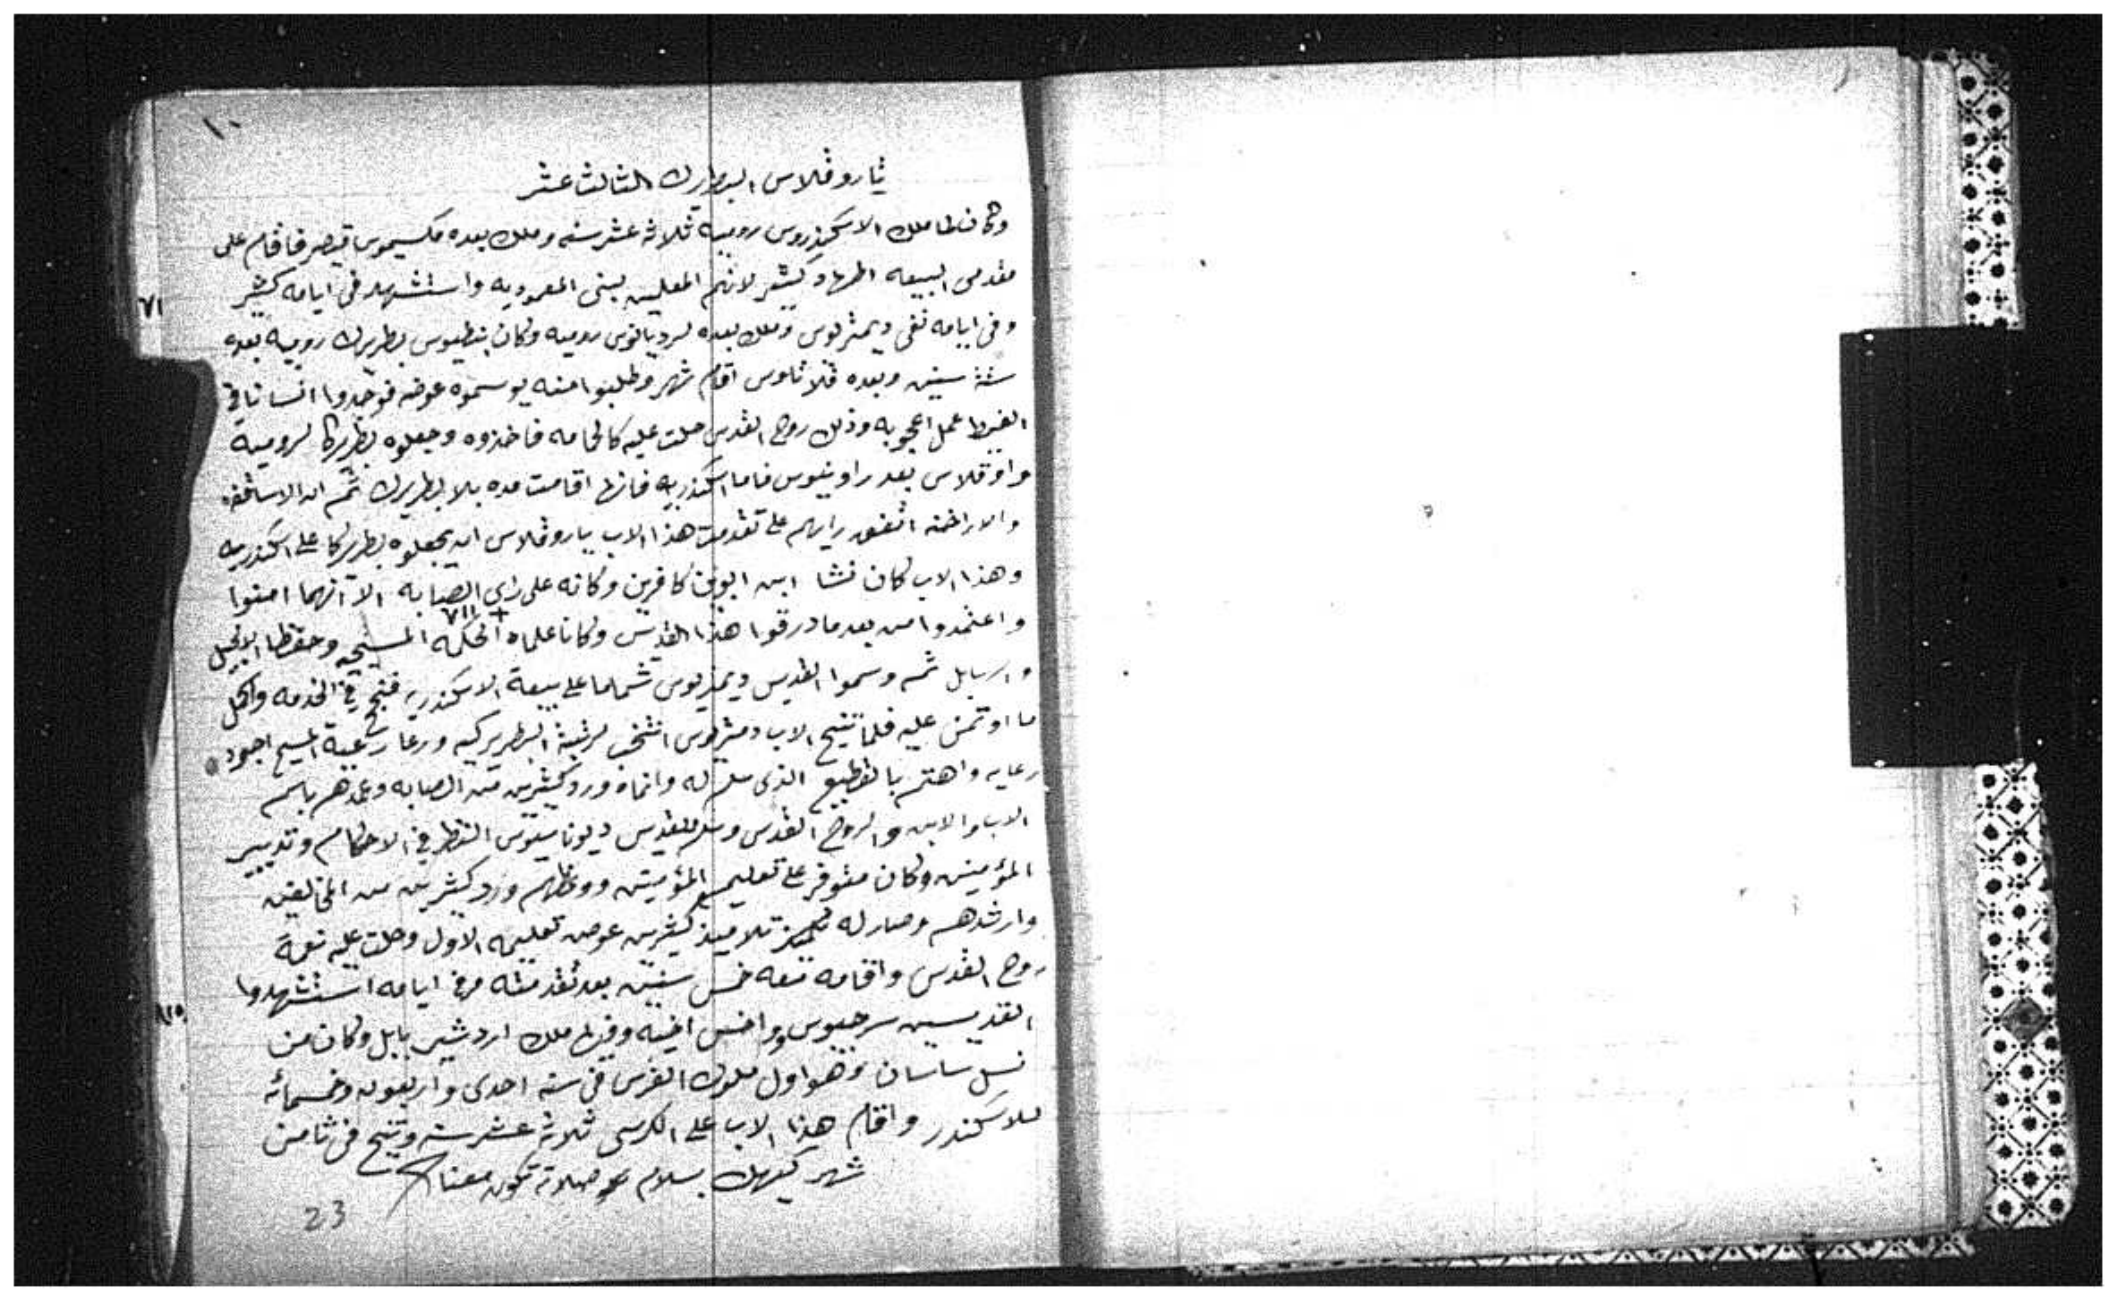 ١٠
ثاروقلاس البطريرك الثالث عشر
وكان لما ملك الاسكندروس رومية ثلاثة عشر سنه وملك بعده مكسيموس قيصر فاقام على
مقدمى البيعه اطهاد كثير لانهم المعلمين لبنى المعموديه واستشهد فى ايامه كثير
وفى ايامه نفى ديمتريوس وملك بعده لرديانوس روميه وكان بنطيوس بطريرك رومية بعده
ستة سنين وبعده فلاثاوس اقام شهر وطلبوا منه يوسموه عوضه فوجدوا انسانا فى
الغيط عمل اعجوبه وذلك روح القدس حلت عليه كالحمامه فاخذوه وجعلوه بطريركا لرومية
واوقلاس بعد راوينوس فاما اسكندريه فانها اقامت مده بلا بطريرك ثم ان الاساقفه
والاراخنه اتفق رايهم على تقدمت هذا الاب ياروقلاس ان يجعلوه بطريركا على اسكندريه
وهذا الاب كان نشا ابن ابوين كافرين وكانه على راى الصابه الا انهما امنوا
واعتمدوا من بعد ما درقوا هذا القديس وكانا علماه الحكمه المسيحيه وحفظا الانجيل
والرسايل ثم وسموا القديس ديمتريوس شماسا على بيعة الاسكندريه فنجح فى الخدمه واكمل
ما اوتمن عليه فلما تنيح الاب دمتريوس انتخب لرتبة البطريركيه ورعا رعية المسيح اجود
رعايه واهتم بالقطيع الذى سلم له وانماه ورد كثيرين من الصابه وعمدهم باسم
الاب والابن والروح القدس وسلم للقديس ديوناسيوس النظر فى الاحكام وتدبير
المؤمنين وكان متوفر على تعليم المؤمنين ووعظهم ورد كثيرين من المخالفين
وارشدهم وصار له تلاميذ كثيرين عوض تعليمه الاول وحلت عليه نعمة
روح القدس واقامه تسعه خمس سنين بعد تقدمته وفى ايامه استشهدوا
القديسين سرجيوس وواخس اخيه وفيها ملك اردشير بابل وكان من
نسل ساسان وهو اول ملوك الفرس فى سنه احدى واربعون وخمسمائه
للاسكندر واقام هذا الاب على الكرسى ثلاثة عشر سنه وتنيح فى ثامن
شهر كيهك بسلام صلاته تكون معنا
23